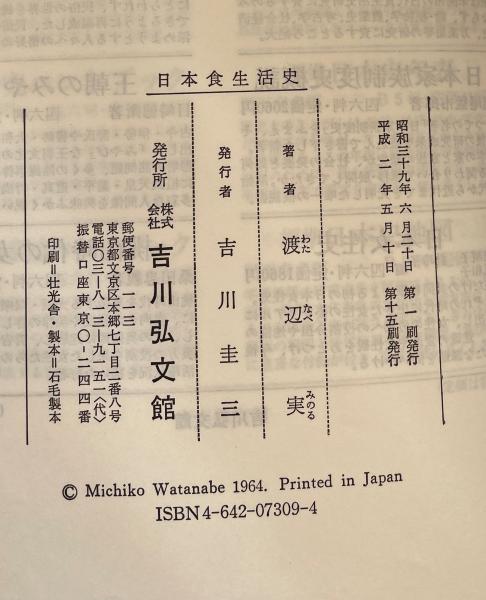 日本食生活史
昭和三十九年 六月二十日 第一刷発行
平成 二 年 五月十日 第十五刷発行
著者 渡辺 実
わた なべ みのる
発行者 吉川圭三
発行所 株式会社 吉川弘文館
郵便番号 一一三
東京都文京区本郷七丁目二番八号
電話〇三―八一三―九一五一〈代〉
振替口座東京〇―二四四番
印刷=壮光舎・製本=石毛製本
© Michiko Watanabe 1964. Printed in Japan
ISBN4-642-07309-4